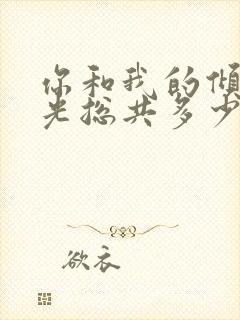 你和我的倾
光总共多少
欲衣